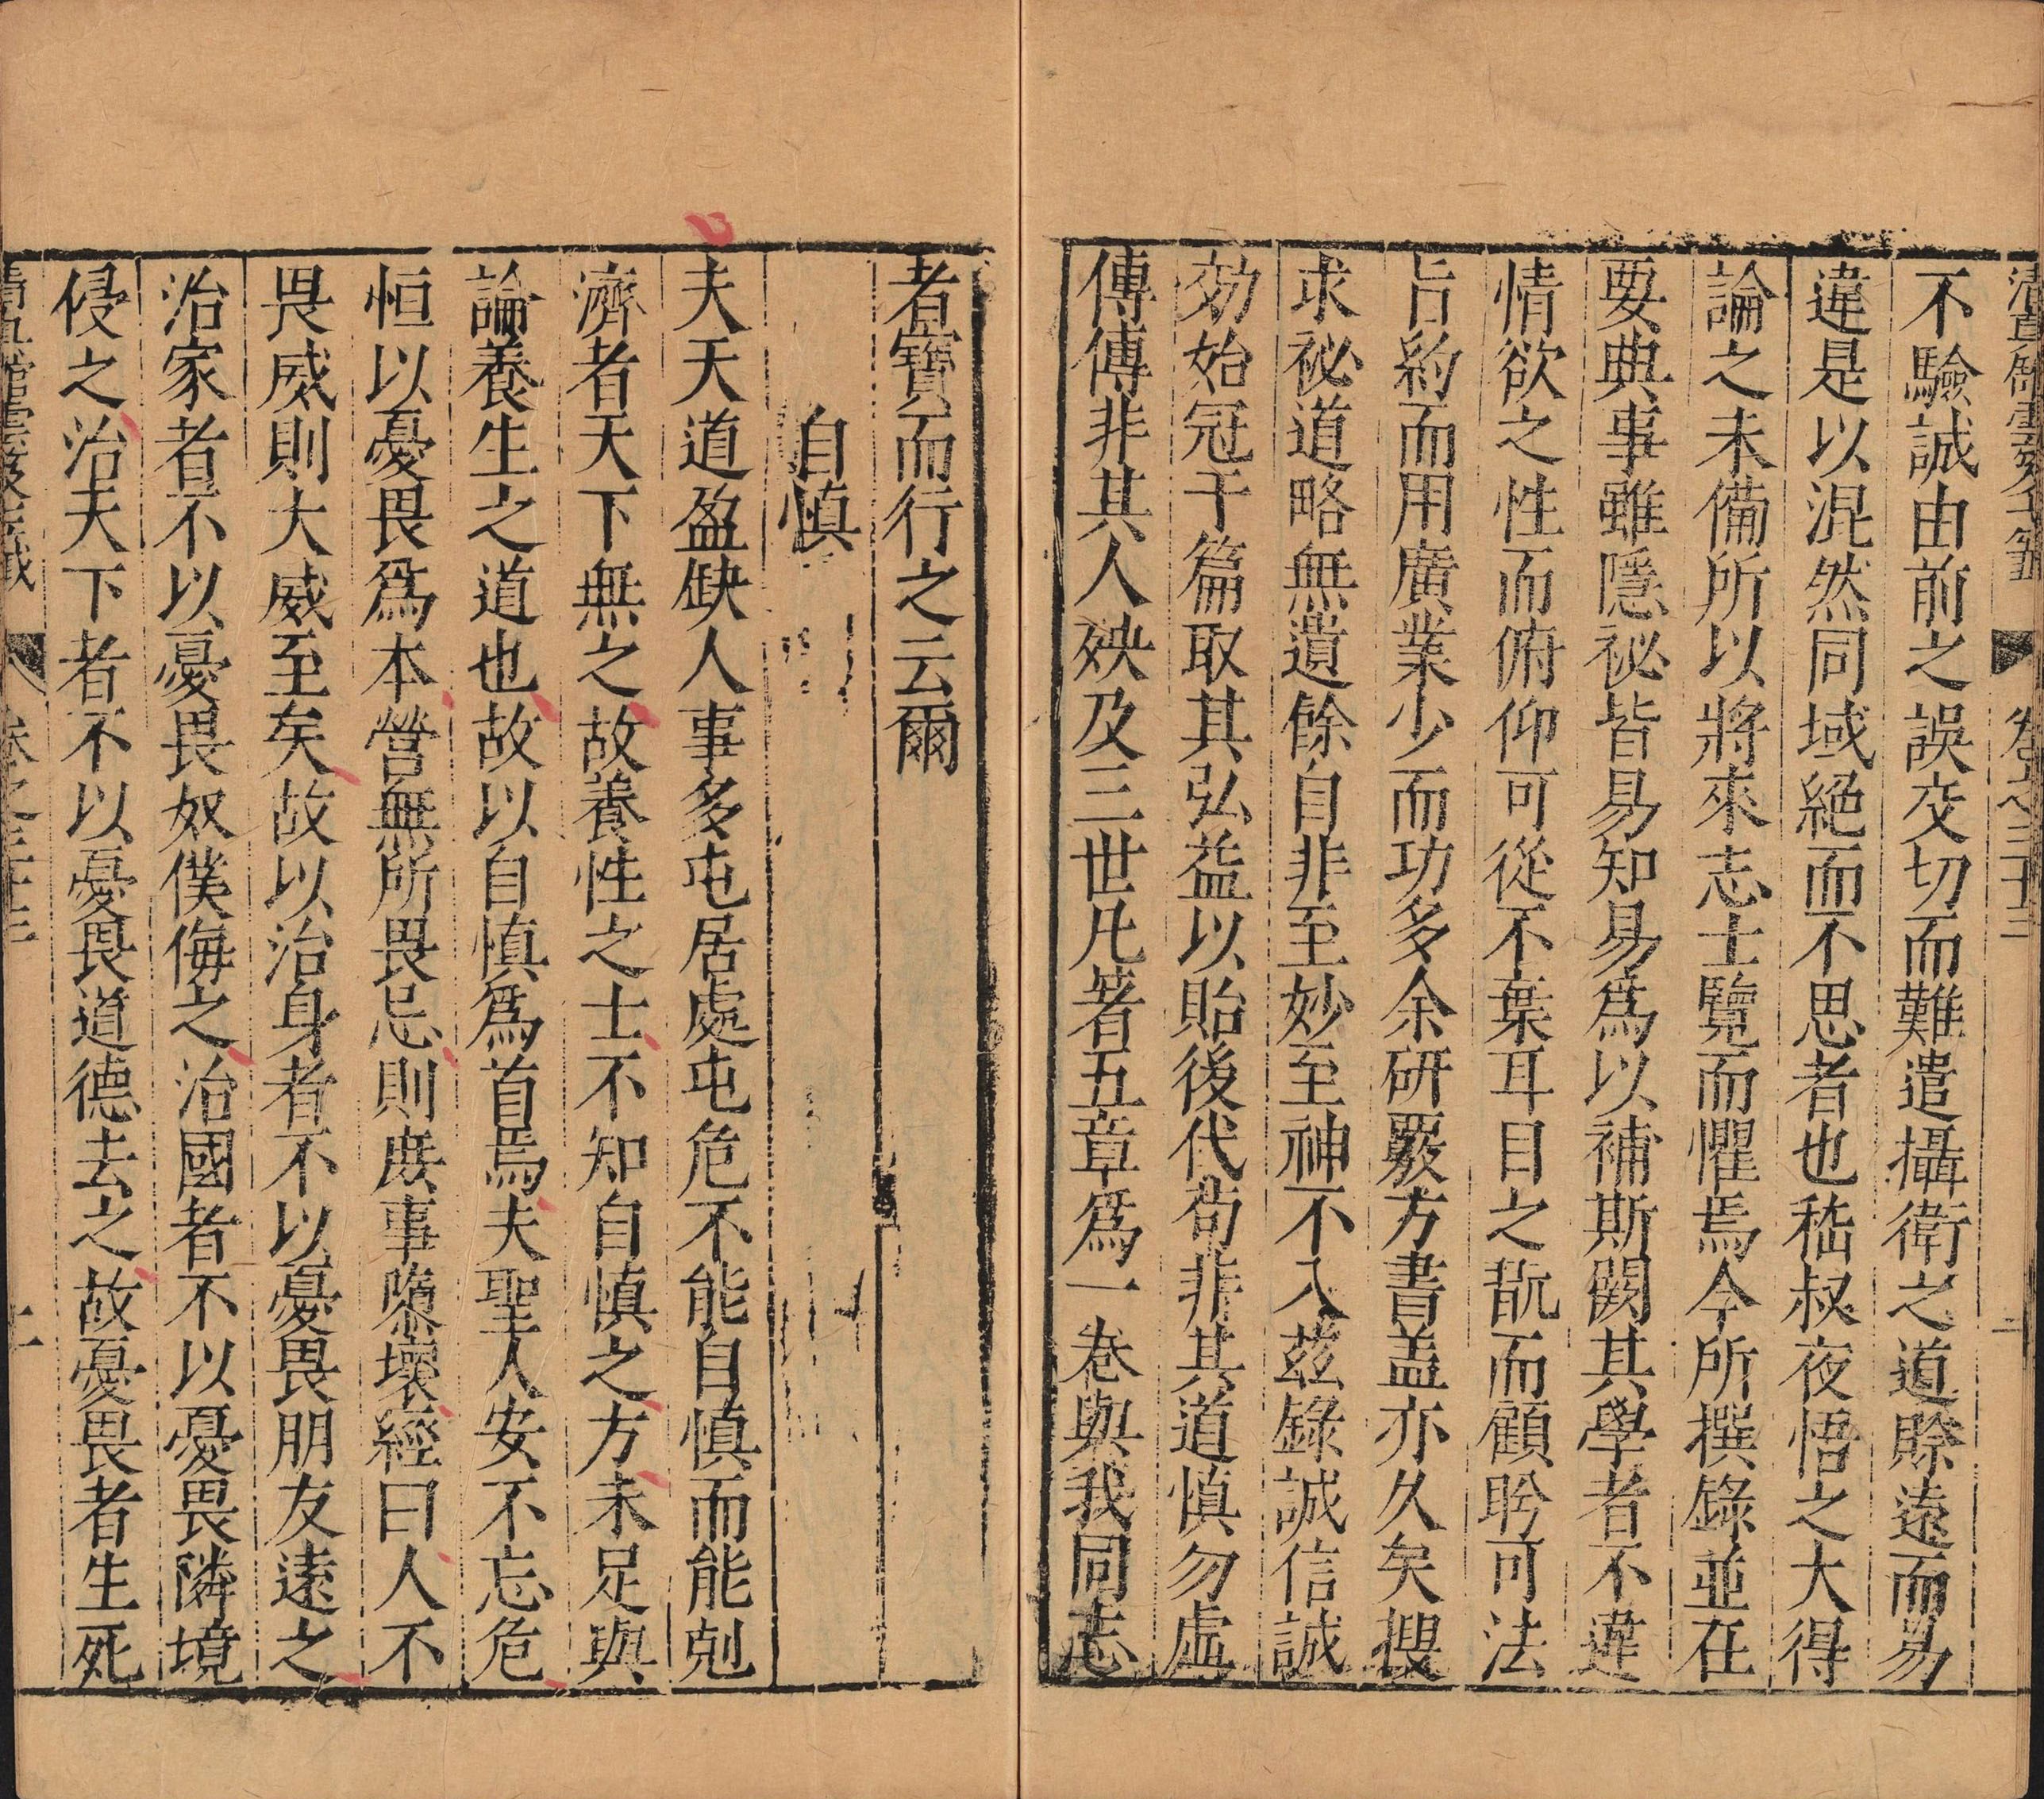 清真館雲笈七籤 卷之三十三 二
不驗誠由前之誤交切而難遣攝衛之道賒遠而易
違是以混然同域絕而不思者也嵇叔夜悟之大得
論之未備所以將來志士覽而懼焉今所撰錄並在
要典事雖隱祕皆易知易爲以補斯闕其學者不違
情欲之性而俯仰可從不棄耳目之翫而顧眄可法
旨約而用廣業少而功多余研覈方書盖亦久矣搜
求祕道略無遺餘自非至妙至神不入茲錄誠信誠
効始冠于篇取其弘益以貽後代苟非其道慎勿虛
傳傳非其人殃及三世凡著五章爲一卷與我同志
者寶而行之云爾
自慎
夫天道盈缺人事多屯居處屯危不能自慎而能剋
濟者天下無之故養性之士不知自慎之方未足與
論養生之道也故以自慎爲首焉夫聖人安不忘危
恒以憂畏爲本營無所畏忌則庶事隳壞經曰人不
畏威則大威至矣故以治身者不以憂畏朋友遠之
治家者不以憂畏奴僕侮之治國者不以憂畏隣境
侵之治天下者不以憂畏道德去之故憂畏者生死